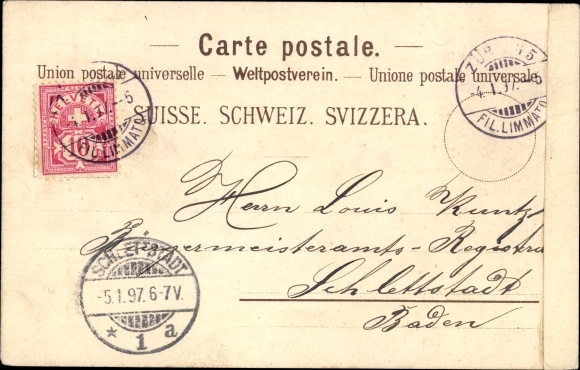 Carte postale.
Union postale universelle — Weltpostverein. — Unione postale universale
SUISSE. SCHWEIZ. SVIZZERA.
HELVETIA
10
FIL. LIMMATQ.
ZÜRICH 5
4.I.97.
FIL. LIMMATQ.
Herrn Louis Kuntz
Bürgermeisteramts-Registra
Schlettstadt
Baden
SCHLETTSTADT
-5.1.97.6-7V.
* 1 a